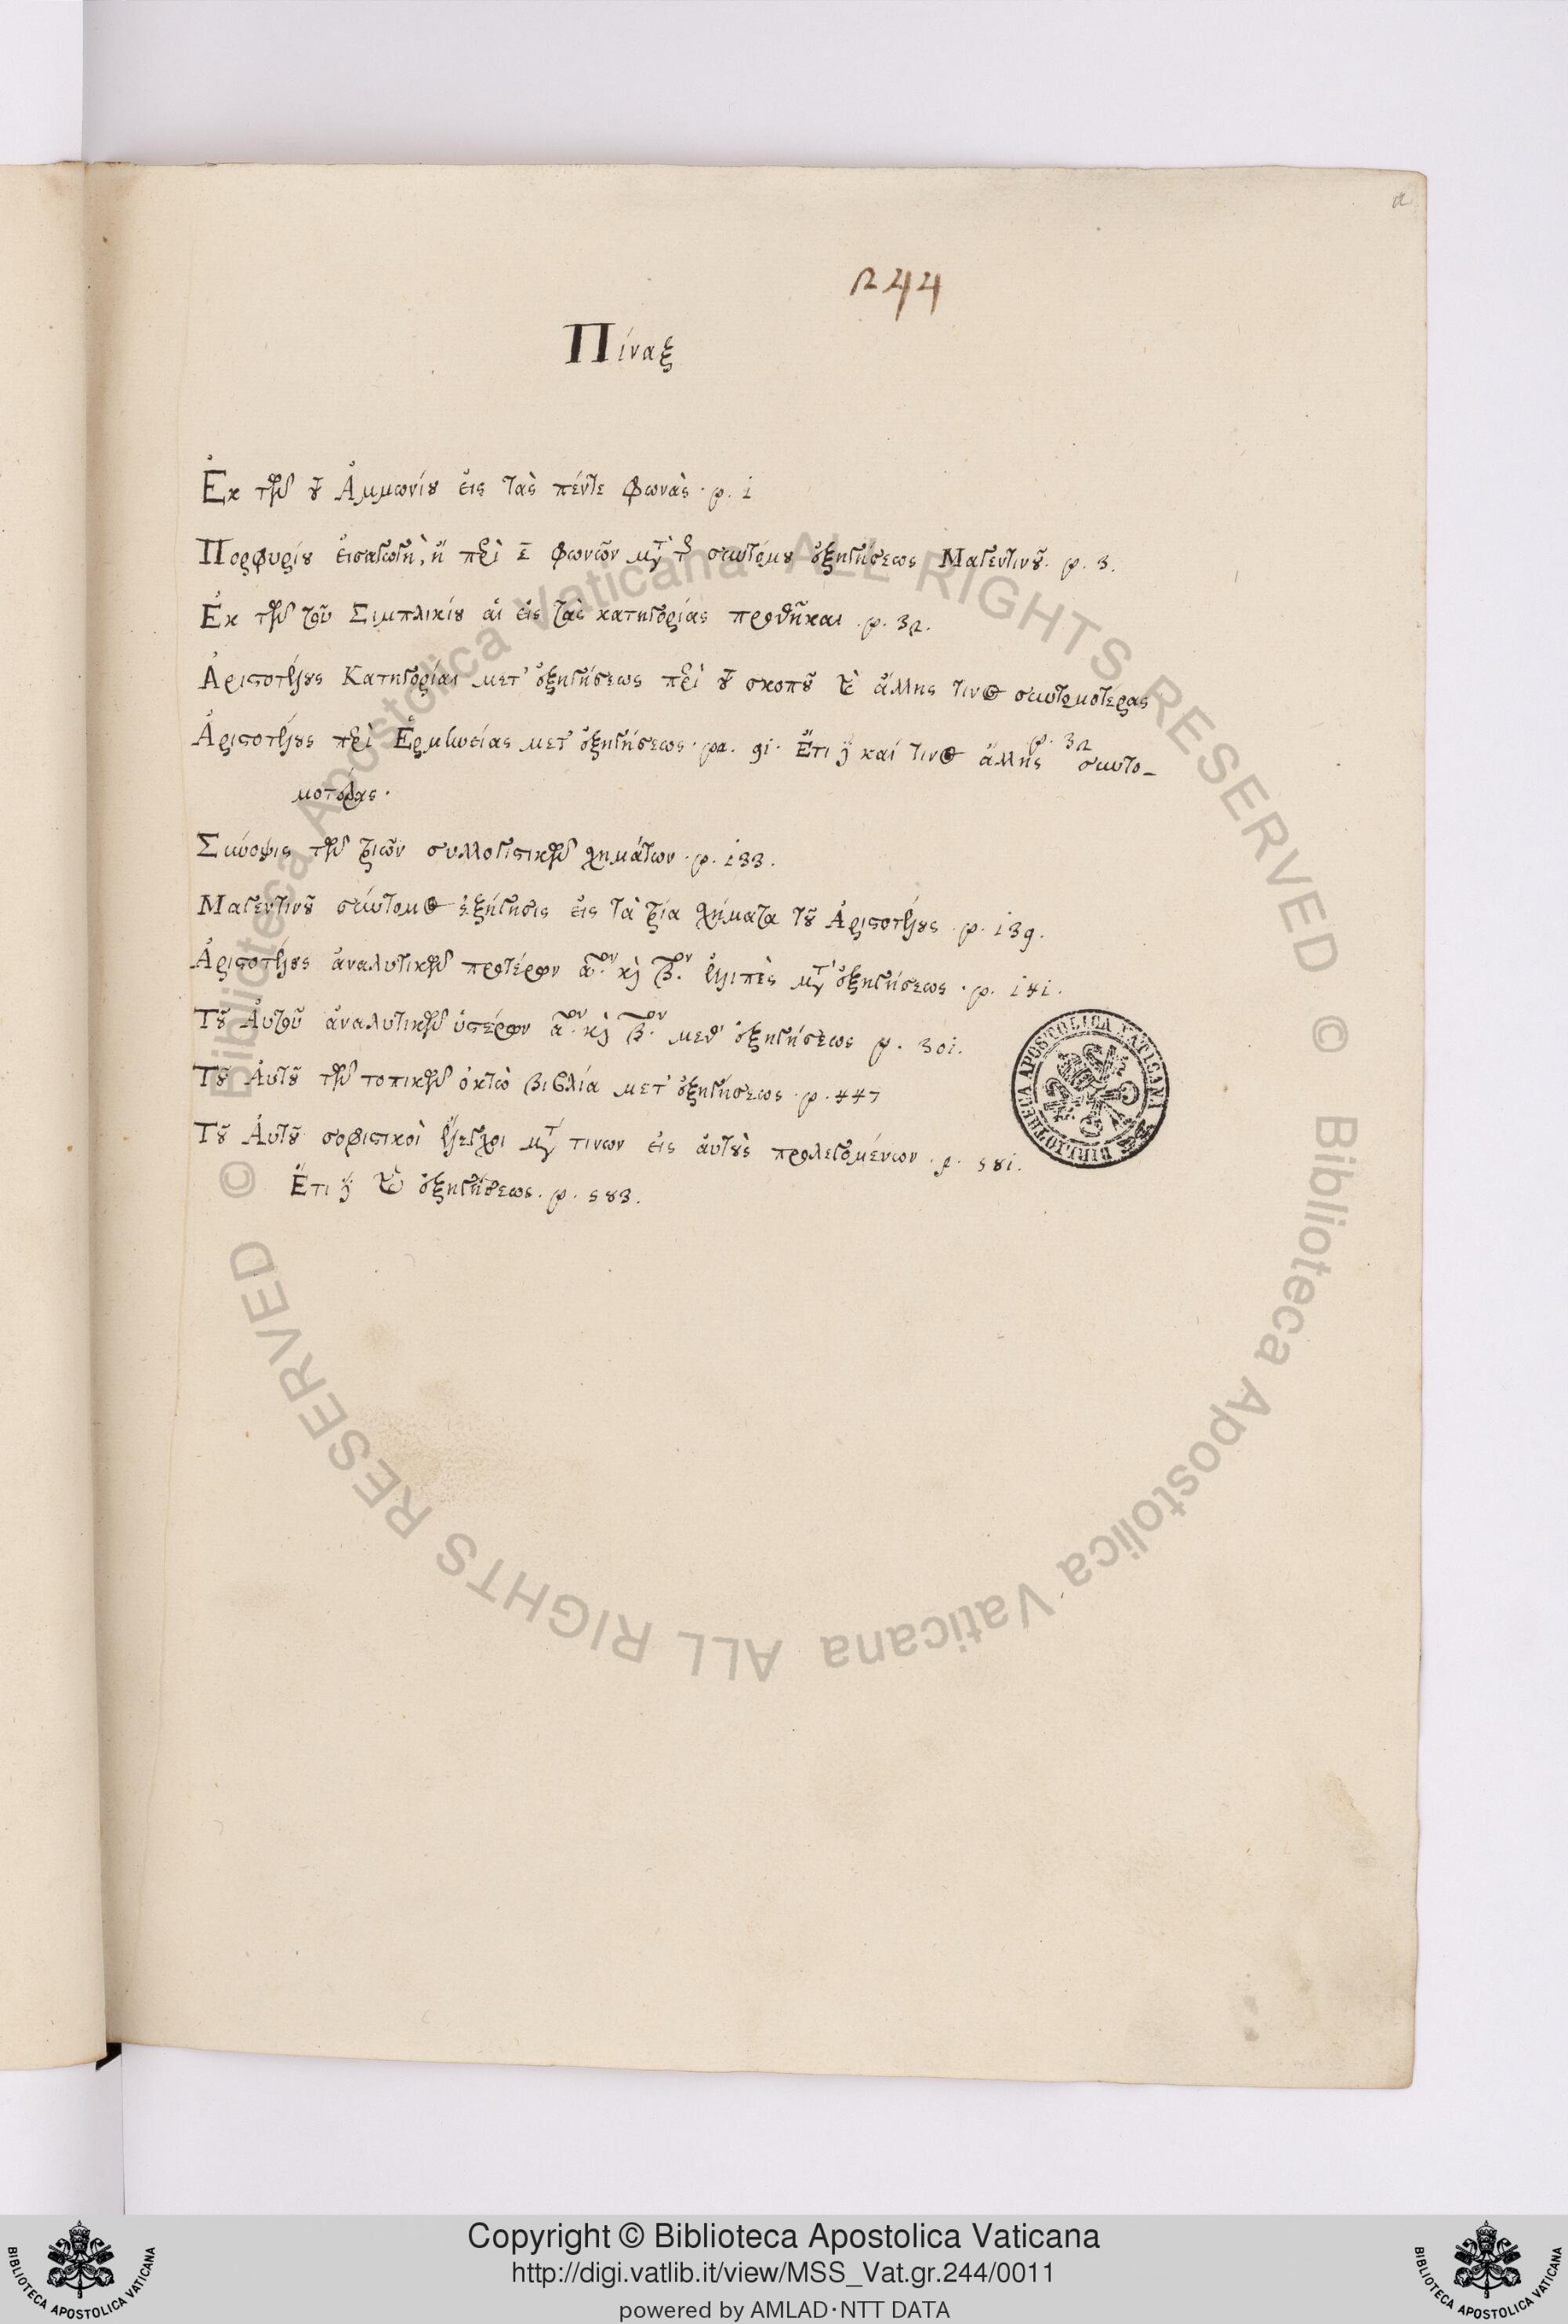 a
244
Πίναξ
Ἐκ τῶν τοῦ Ἀμμωνίου εἰς τὰς πέντε φωνὰς · p. 1
Πορφυρίου εἰσαγωγὴ, ἢ περὶ ε̄ φωνῶν μετὰ τῆς συντόμου ἐξηγήσεως Μαγεντινοῦ. p. 3.
Ἐκ τῶν τοῦ Σιμπλικίου αἱ εἰς τὰς κατηγορίας προσθῆκαι . p. 32.
Ἀριστοτέλους Κατηγορίαι μετ' ἐξηγήσεως περὶ τοῦ σκοποῦ καὶ ἄλλης τινὸς συντομοτέρας
p. 32
Ἀριστοτέλους περὶ Ἑρμηνείας μετ' ἐξηγήσεως · pa. 91. Ἔτι δὲ καί τινος ἄλλης συντο-
μοτέρας ·
Σύνοψις τῶν τριῶν συλλογιστικῶν σχημάτων · p. 133.
Μαγεντινοῦ σύντομος ἐξήγησις εἰς τὰ τρία σχήματα τοῦ Ἀριστοτέλους · p. 139.
Ἀριστοτέλους ἀναλυτικῶν προτέρων α.ον καὶ β.ον ἐλλιπὲς μετ' ἐξηγήσεως · p. 141.
Τοῦ Αὐτοῦ ἀναλυτικῶν ὑστέρων α.ον καὶ β.ον μεθ' ἐξηγήσεως p. 301.
Τοῦ Αὐτοῦ τῶν τοπικῶν ὀκτὼ βιβλία μετ' ἐξηγήσεως · p. 447
Τοῦ Αὐτοῦ σοφιστικοὶ ἔλεγχοι μετά τινων εἰς αὐτοὺς προλεγομένων · p. 581.
Ἔτι δὲ καὶ ἐξηγήσεως · p. 583.
BIBLIOTECA APOSTOLICA VATICANA
© Biblioteca Apostolica Vaticana ALL RIGHTS RESERVED
© Biblioteca Apostolica Vaticana ALL RIGHTS RESERVED
Copyright © Biblioteca Apostolica Vaticana
http://digi.vatlib.it/view/MSS_Vat.gr.244/0011
powered by AMLAD·NTT DATA
BIBLIOTECA APOSTOLICA VATICANA
BIBLIOTECA APOSTOLICA VATICANA